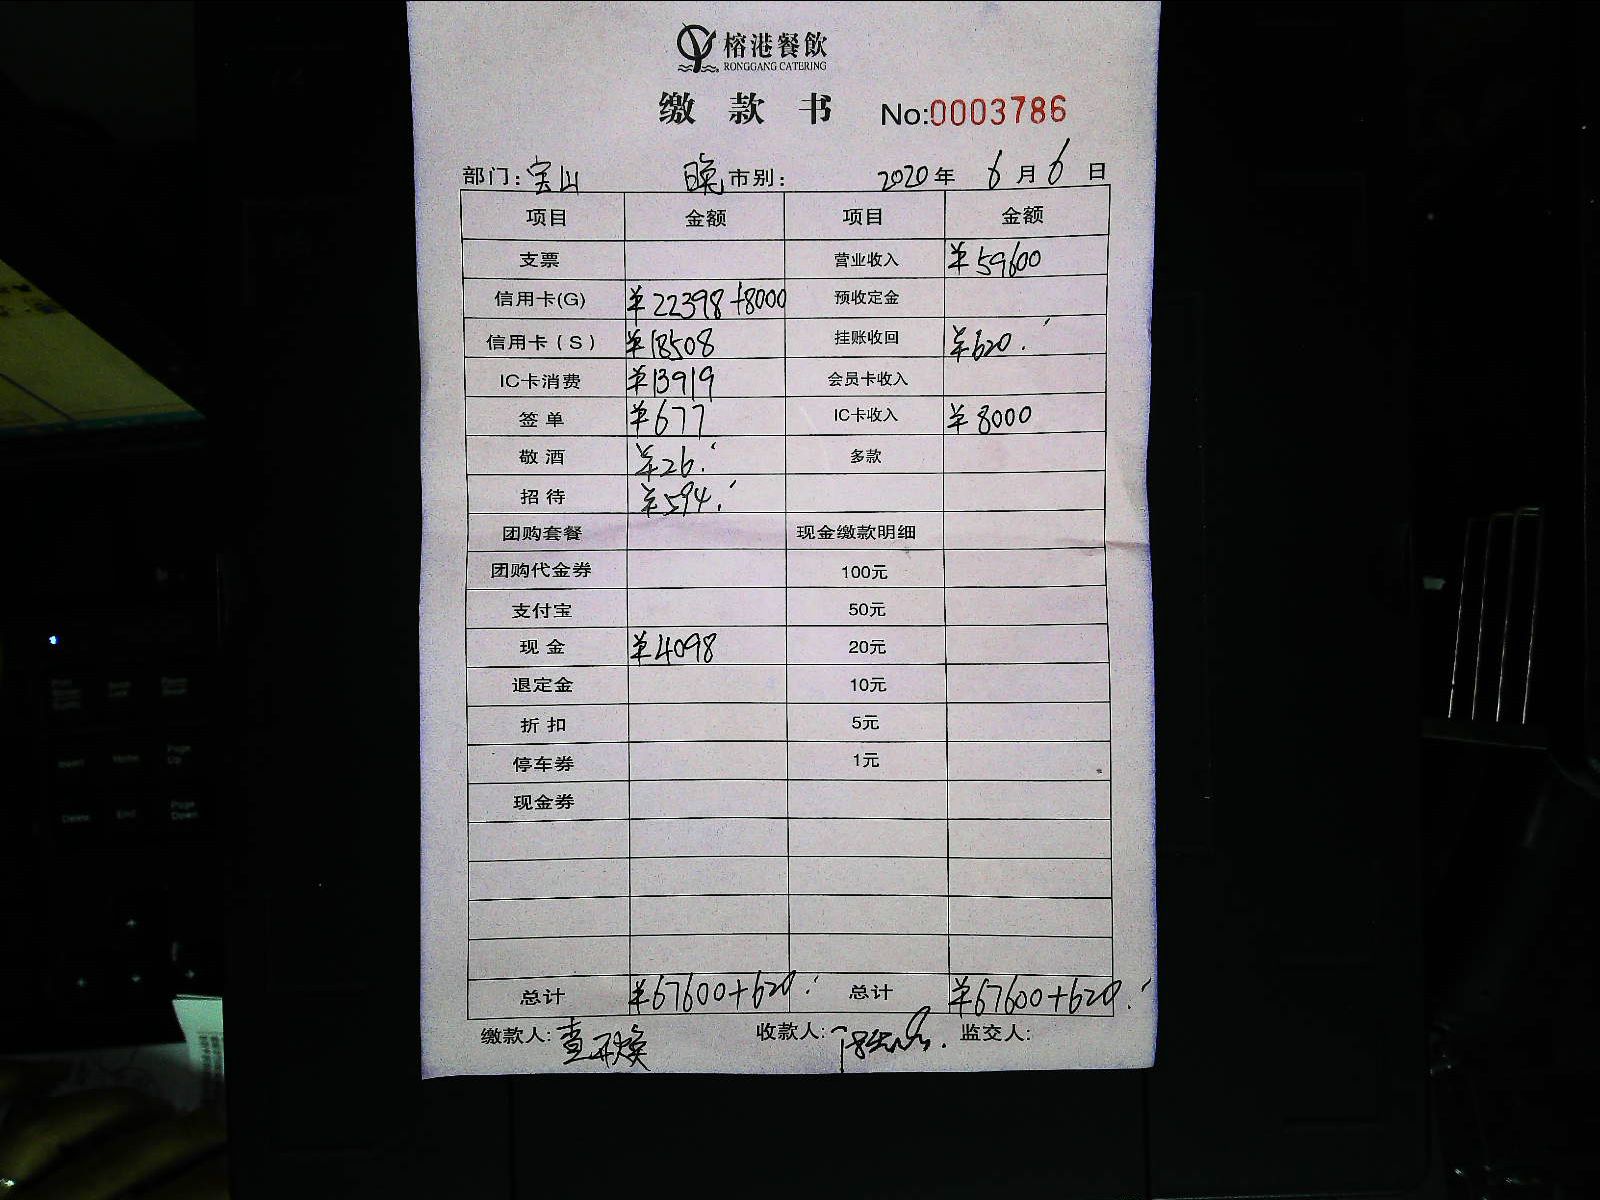 榕港餐飲
RONGGANG CATERING
缴款书 No:0003786
部门：宝山 晚市别： 2020年 6月6日
项目 金额 项目 金额
支票 营业收入 ¥59600
信用卡(G) ¥22398+8000 预收定金
信用卡（S） ¥18508 挂账收回 ¥620.
IC卡消费 ¥13919 会员卡收入
签单 ¥677 IC卡收入 ¥8000
敬酒 ¥26. 多款
招待 ¥594.
团购套餐 现金缴款明细
团购代金券 100元
支付宝 50元
现金 ¥4098 20元
退定金 10元
折扣 5元
停车券 1元
现金券
总计 ¥67600+620. 总计 ¥67600+620.
缴款人: 查开焕 收款人: 监交人: